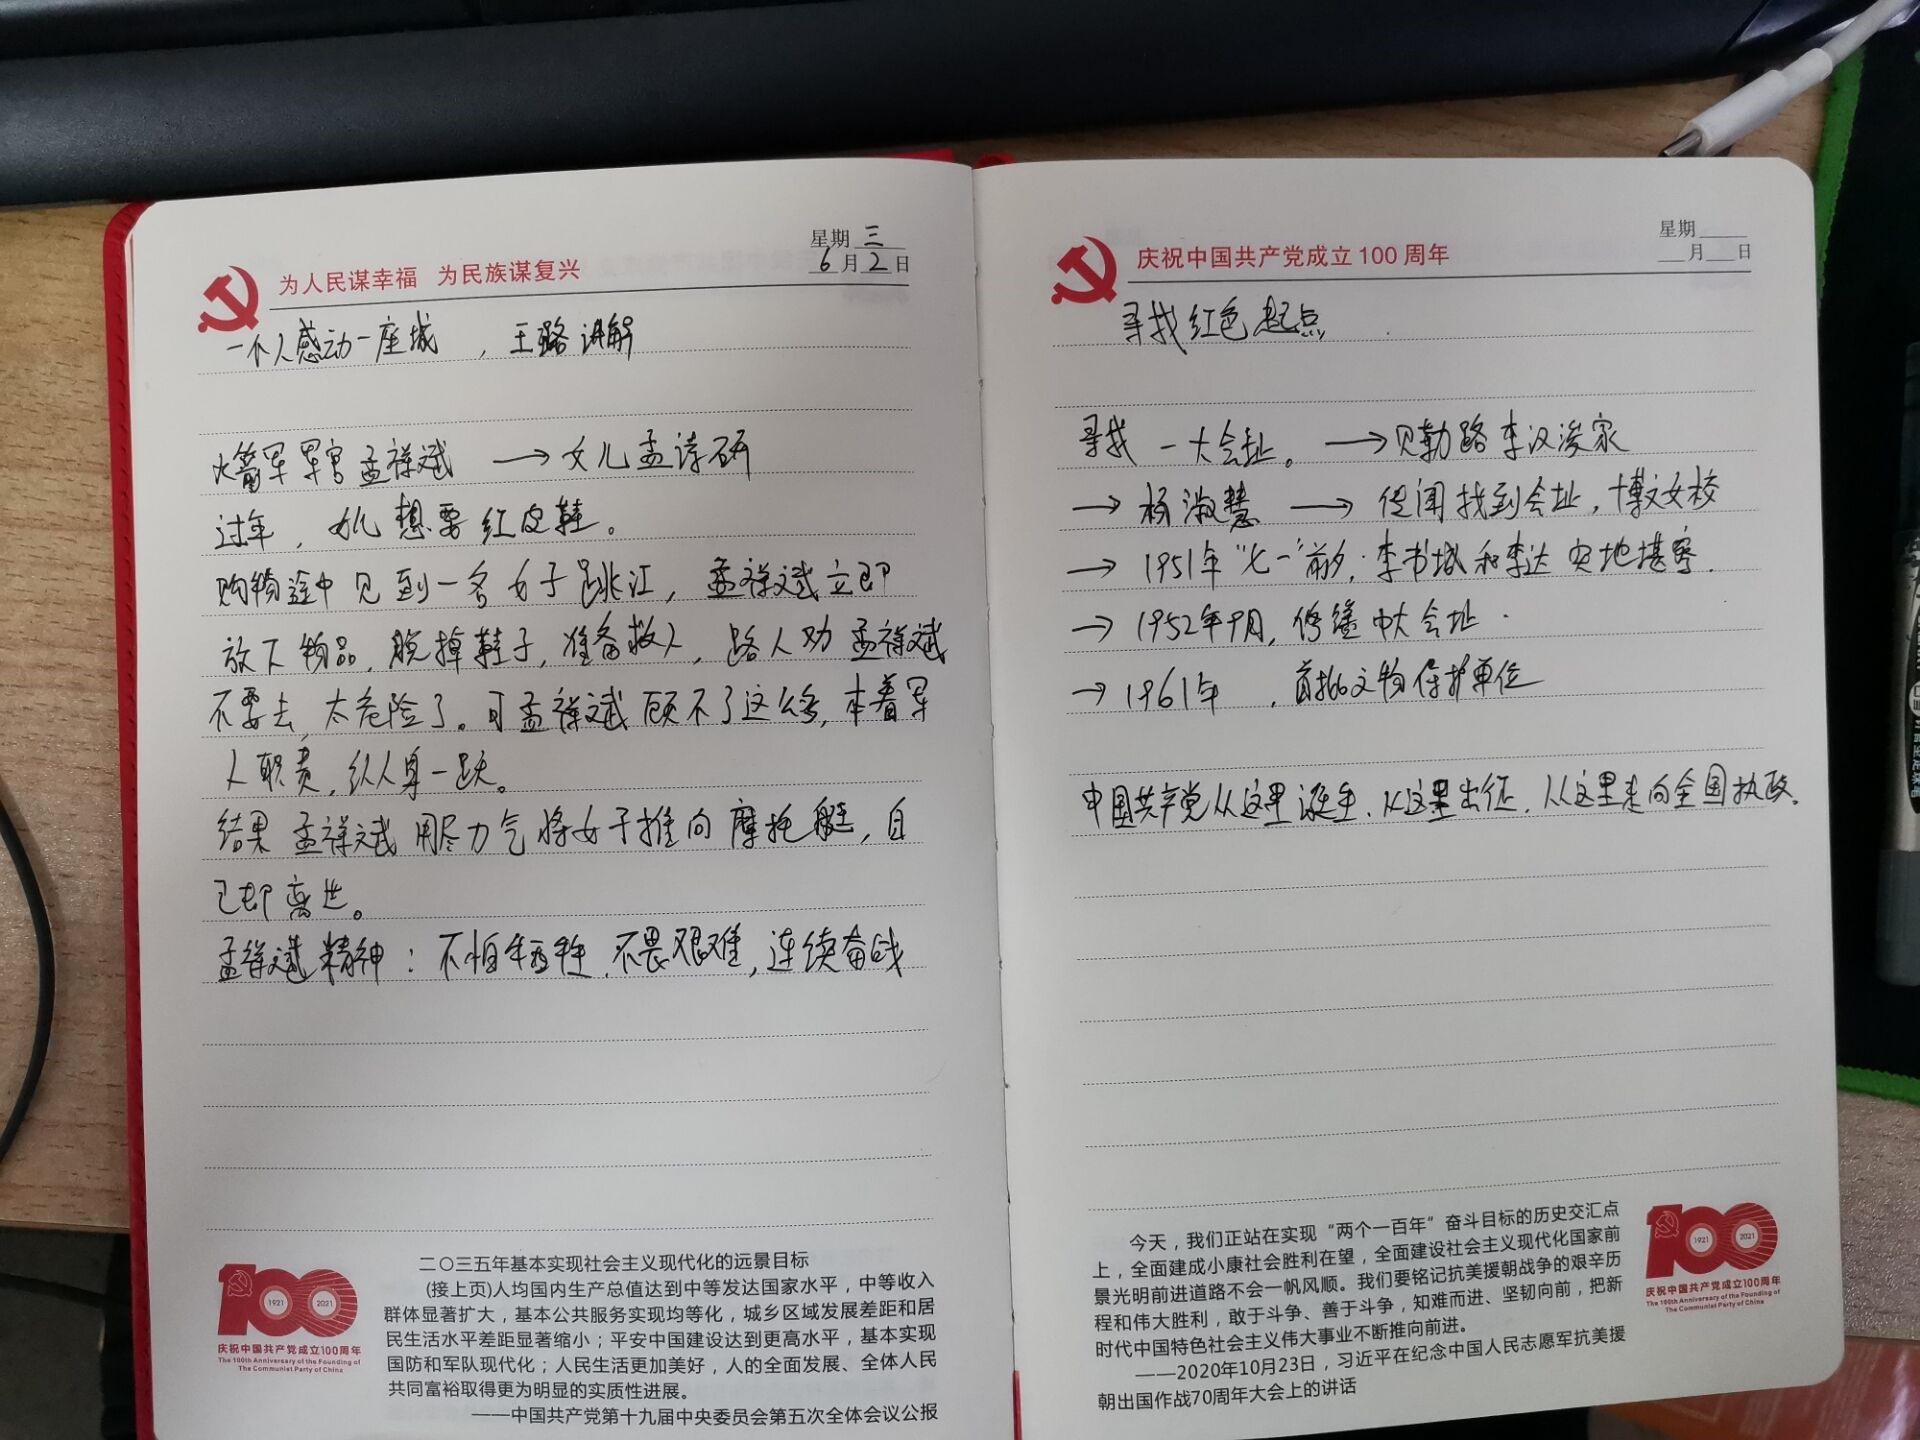 为人民谋幸福 为民族谋复兴
星期 三
6月2日
一个人感动一座城 , 王璐 讲解
火箭军军官孟祥斌 → 女儿孟诗研
过年，女儿想要红皮鞋。
购物途中见到一名女子跳江，孟祥斌立即
放下物品，脱掉鞋子，准备救人，路人劝孟祥斌
不要去，太危险了。可孟祥斌顾不了这么多，本着军
人职责，纵身一跃。
结果孟祥斌用尽力气将女子推向摩托艇，自
己却离世。
孟祥斌精神：不怕牺牲，不畏艰难，连续奋战
二〇三五年基本实现社会主义现代化的远景目标
(接上页)人均国内生产总值达到中等发达国家水平，中等收入
群体显著扩大，基本公共服务实现均等化，城乡区域发展差距和居
民生活水平差距显著缩小；平安中国建设达到更高水平，基本实现
国防和军队现代化；人民生活更加美好，人的全面发展、全体人民
共同富裕取得更为明显的实质性进展。
——中国共产党第十九届中央委员会第五次全体会议公报
100
1921 2021
庆祝中国共产党成立100周年
The 100th Anniversary of the Founding of
The Communist Party of China
庆祝中国共产党成立100周年
星期
月 日
寻找红色起点
寻找一大会址。→贝勒路李汉俊家
→ 杨淑慧 → 使闻找到会址，博文女校
→ 1951年"七一"前夕，李书城和李达实地堪察.
→ 1952年9月，修缮中大会址.
→ 1961年 ，首批文物保护单位
中国共产党从这里诞生，从这里出征，从这里走向全国执政。
今天，我们正站在实现“两个一百年”奋斗目标的历史交汇点
上，全面建成小康社会胜利在望，全面建设社会主义现代化国家前
景光明前进道路不会一帆风顺。我们要铭记抗美援朝战争的艰辛历
程和伟大胜利，敢于斗争、善于斗争，知难而进、坚韧向前，把新
时代中国特色社会主义伟大事业不断推向前进。
——2020年10月23日，习近平在纪念中国人民志愿军抗美援
朝出国作战70周年大会上的讲话
100
1921 2021
庆祝中国共产党成立100周年
The 100th Anniversary of the Founding of
The Communist Party of China